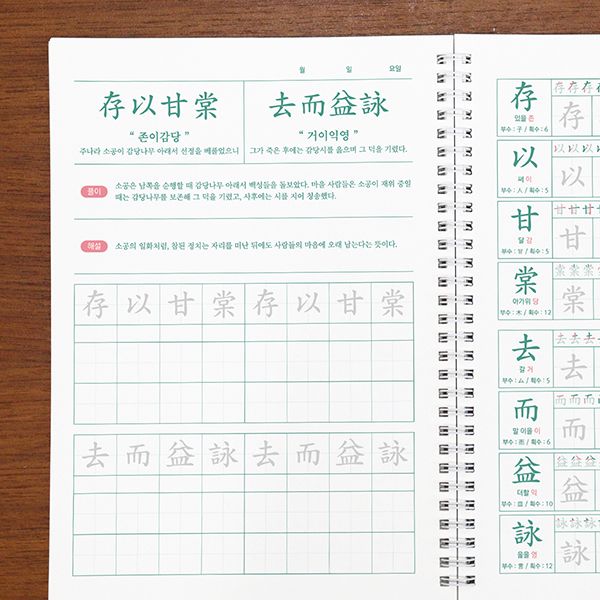 월 일 요일
存以甘棠 去而益詠
“ 존이감당 ” “ 거이익영 ”
주나라 소공이 감당나무 아래서 선정을 베풀었으니 그가 죽은 후에는 감당시를 읊으며 그 덕을 기렸다.
풀이 소공은 남쪽을 순행할 때 감당나무 아래서 백성들을 돌보았다. 마을 사람들은 소공이 재위 중일
때는 감당나무를 보존해 그 덕을 기렸고, 사후에는 시를 지어 칭송했다.
해설 소공의 일화처럼, 참된 정치는 자리를 떠난 뒤에도 사람들의 마음에 오래 남는다는 뜻이다.
存 以 甘 棠 存 以 甘 棠
去 而 益 詠 去 而 益 詠
存 存 存 存 存
存
있을 존
부수 : 子 / 획수 : 6
以 以 以 以
以
써 이
부수 : 人 / 획수 : 5
甘 甘 甘 甘
甘
달 감
부수 : 甘 / 획수 : 5
棠 棠 棠 棠
棠
아가위 당
부수 : 木 / 획수 : 12
去 去 去 去
去
갈 거
부수 : 厶 / 획수 : 5
而 而 而 而
而
말 이을 이
부수 : 而 / 획수 : 6
益 益 益 益
益
더할 익
부수 : 皿 / 획수 : 10
詠 詠 詠 詠
詠
읊을 영
부수 : 言 / 획수 : 12